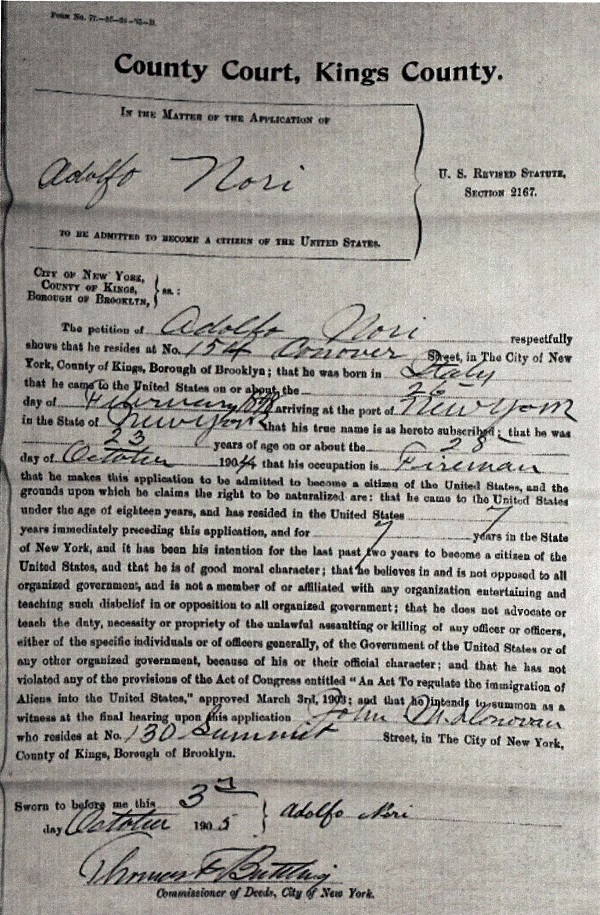 County Court, Kings County.
IN THE MATTER OF THE APPLICATION OF
Adolfo Nori
U. S. REVISED STATUTE,
SECTION 2167.
TO BE ADMITTED TO BECOME A CITIZEN OF THE UNITED STATES.
CITY OF NEW YORK,
COUNTY OF KINGS,
BOROUGH OF BROOKLYN,
ss.:
The petition of Adolfo Nori respectfully
shows that he resides at No. 154 Conover Street, in The City of New
York, County of Kings, Borough of Brooklyn; that he was born in Italy
that he came to the United States on or about the 26
day of February arriving at the port of New York
in the State of New York that his true name is as hereto subscribed; that he was
23 years of age on or about the 28
day of October 1904 that his occupation is Fireman
that he makes this application to be admitted to become a citizen of the United States, and the
grounds upon which he claims the right to be naturalized are: that he came to the United States
under the age of eighteen years, and has resided in the United States 7
years immediately preceding this application, and for 7 years in the State
of New York, and it has been his intention for the last past two years to become a citizen of the
United States, and that he is of good moral character; that he believes in and is not opposed to all
organized government, and is not a member of or affiliated with any organization entertaining and
teaching such disbelief in or opposition to all organized government; that he does not advocate or
teach the duty, necessity or propriety of the unlawful assaulting or killing of any officer or officers,
either of the specific individuals or of officers generally, of the Government of the United States or of
any other organized government, because of his or their official character; and that he has not
violated any of the provisions of the Act of Congress entitled "An Act To regulate the immigration of
Aliens into the United States," approved March 3rd, 1903; and that he intends to summon as a
witness at the final hearing upon this application John M. Donovan
who resides at No. 130 Summit Street, in The City of New York,
County of Kings, Borough of Brooklyn.
Sworn to before me this 3rd
day October 1905
Adolfo Nori
Thomas F. Buttling
Commissioner of Deeds, City of New York.